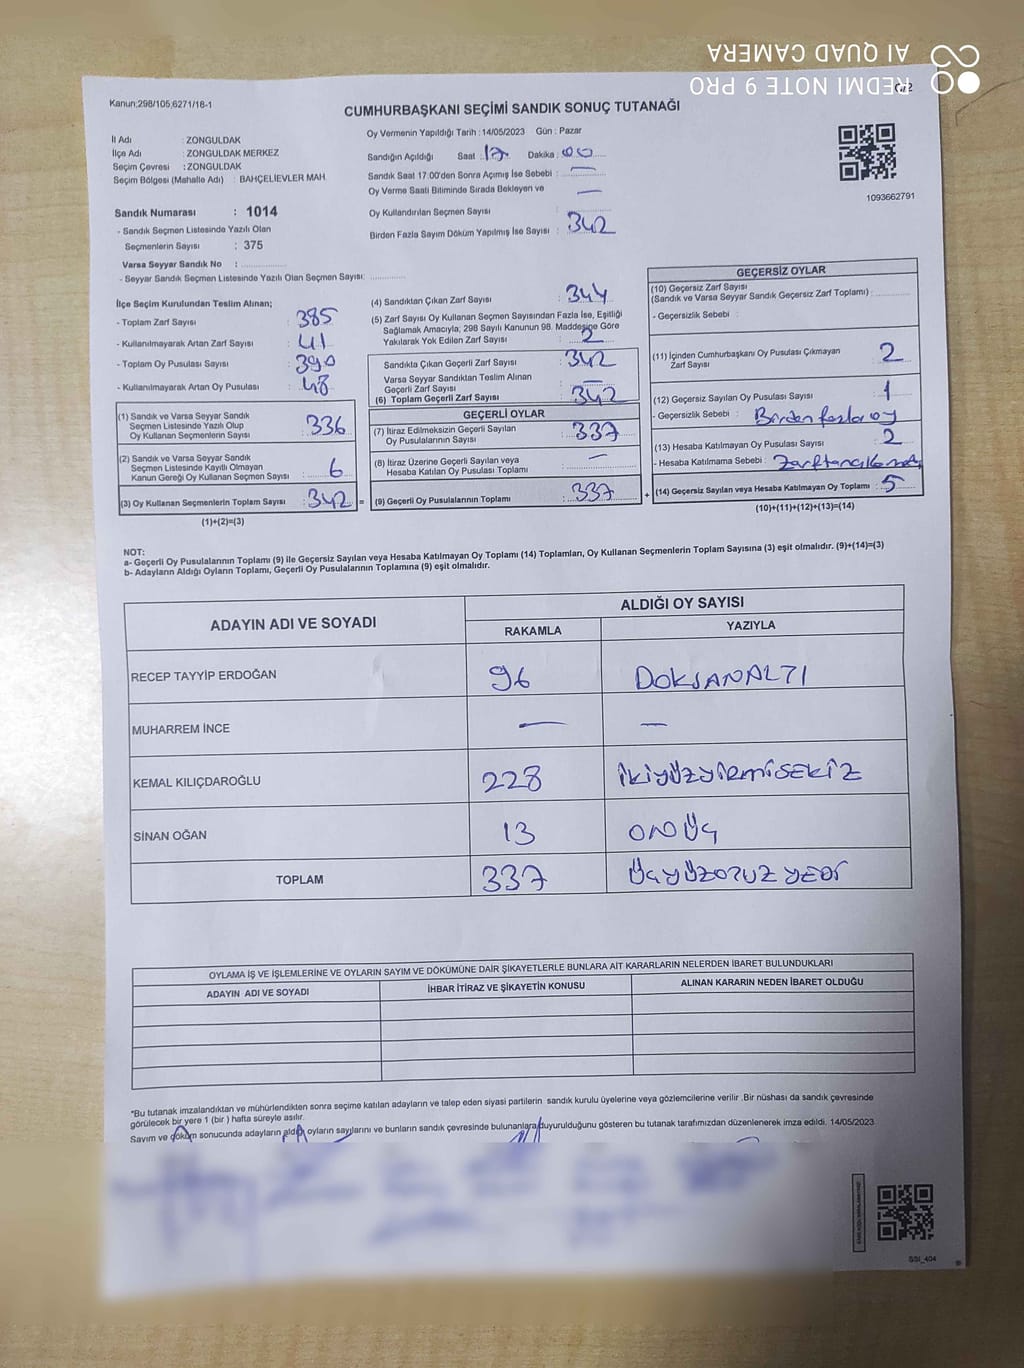 REDMI NOTE 9 PRO
AI QUAD CAMERA
Kanun:298/105,6271/18-1
CUMHURBAŞKANI SEÇİMİ SANDIK SONUÇ TUTANAĞI
İl Adı : ZONGULDAK
İlçe Adı : ZONGULDAK MERKEZ
Seçim Çevresi : ZONGULDAK
Seçim Bölgesi (Mahalle Adı) : BAHÇELİEVLER MAH.
Sandık Numarası : 1014
- Sandık Seçmen Listesinde Yazılı Olan
Seçmenlerin Sayısı : 375
Varsa Seyyar Sandık No : ..............
- Seyyar Sandık Seçmen Listesinde Yazılı Olan Seçmen Sayısı: ............
Oy Vermenin Yapıldığı Tarih : 14/05/2023 Gün : Pazar
Sandığın Açıldığı Saat : 17 Dakika : 00
Sandık Saat 17:00'den Sonra Açımış İse Sebebi : —
Oy Verme Saati Bitiminde Sırada Bekleyen ve —
Oy Kullandırılan Seçmen Sayısı :
Birden Fazla Sayım Döküm Yapılmış İse Sayısı : 342
1093662791
İlçe Seçim Kurulundan Teslim Alınan;
- Toplam Zarf Sayısı : 385
- Kullanılmayarak Artan Zarf Sayısı : 41
- Toplam Oy Pusulası Sayısı : 390
- Kullanılmayarak Artan Oy Pusulası : 48
(1) Sandık ve Varsa Seyyar Sandık
Seçmen Listesinde Yazılı Olup
Oy Kullanan Seçmenlerin Sayısı : 336
(2) Sandık ve Varsa Seyyar Sandık
Seçmen Listesinde Kayıtlı Olmayan
Kanun Gereği Oy Kullanan Seçmen Sayısı : 6
(3) Oy Kullanan Seçmenlerin Toplam Sayısı : 342 =
(1)+(2)=(3)
(4) Sandıktan Çıkan Zarf Sayısı : 344
(5) Zarf Sayısı Oy Kullanan Seçmen Sayısından Fazla İse, Eşitliği
Sağlamak Amacıyla; 298 Sayılı Kanunun 98. Maddesine Göre
Yakılarak Yok Edilen Zarf Sayısı : 2
Sandıkta Çıkan Geçerli Zarf Sayısı : 342
Varsa Seyyar Sandıktan Teslim Alınan
Geçerli Zarf Sayısı : —
(6) Toplam Geçerli Zarf Sayısı : 342
GEÇERLİ OYLAR
(7) İtiraz Edilmeksizin Geçerli Sayılan
Oy Pusulalarının Sayısı : 337
(8) İtiraz Üzerine Geçerli Sayılan veya
Hesaba Katılan Oy Pusulası Toplamı : —
(9) Geçerli Oy Pusulalarının Toplamı : 337 +
GEÇERSİZ OYLAR
(10) Geçersiz Zarf Sayısı
(Sandık ve Varsa Seyyar Sandık Geçersiz Zarf Toplamı) : ..........
- Geçersizlik Sebebi :
(11) İçinden Cumhurbaşkanı Oy Pusulası Çıkmayan
Zarf Sayısı : 2
(12) Geçersiz Sayılan Oy Pusulası Sayısı : 1
- Geçersizlik Sebebi : Birden fazla oy
(13) Hesaba Katılmayan Oy Pusulası Sayısı : 2
- Hesaba Katılmama Sebebi :
(14) Geçersiz Sayılan veya Hesaba Katılmayan Oy Toplamı : 5
(10)+(11)+(12)+(13)=(14)
NOT:
a- Geçerli Oy Pusulalarının Toplamı (9) ile Geçersiz Sayılan veya Hesaba Katılmayan Oy Toplamı (14) Toplamları, Oy Kullanan Seçmenlerin Toplam Sayısına (3) eşit olmalıdır. (9)+(14)=(3)
b- Adayların Aldığı Oyların Toplamı, Geçerli Oy Pusulalarının Toplamına (9) eşit olmalıdır.
ADAYIN ADI VE SOYADI ALDIĞI OY SAYISI
RAKAMLA YAZIYLA
RECEP TAYYİP ERDOĞAN 96 DOKSANALTI
MUHARREM İNCE — —
KEMAL KILIÇDAROĞLU 228 İKİYÜZYİRMİSEKİZ
SİNAN OĞAN 13 ONÜÇ
TOPLAM 337 ÜÇYÜZOTUZ YEDİ
OYLAMA İŞ VE İŞLEMLERİNE VE OYLARIN SAYIM VE DÖKÜMÜNE DAİR ŞİKAYETLERLE BUNLARA AİT KARARLARIN NELERDEN İBARET BULUNDUKLARI
ADAYIN ADI VE SOYADI İHBAR İTİRAZ VE ŞİKAYETİN KONUSU ALINAN KARARIN NEDEN İBARET OLDUĞU
*Bu tutanak imzalandıktan ve mühürlendikten sonra seçime katılan adayların ve talep eden siyasi partilerin sandık kurulu üyelerine veya gözlemcilerine verilir .Bir nüshası da sandık çevresinde
görülecek bir yere 1 (bir ) hafta süreyle asılır.
Sayım ve döküm sonucunda adayların aldığı oyların sayılarını ve bunların sandık çevresinde bulunanlara duyurulduğunu gösteren bu tutanak tarafımızdan düzenlenerek imza edildi. 14/05/2023
SSI_404